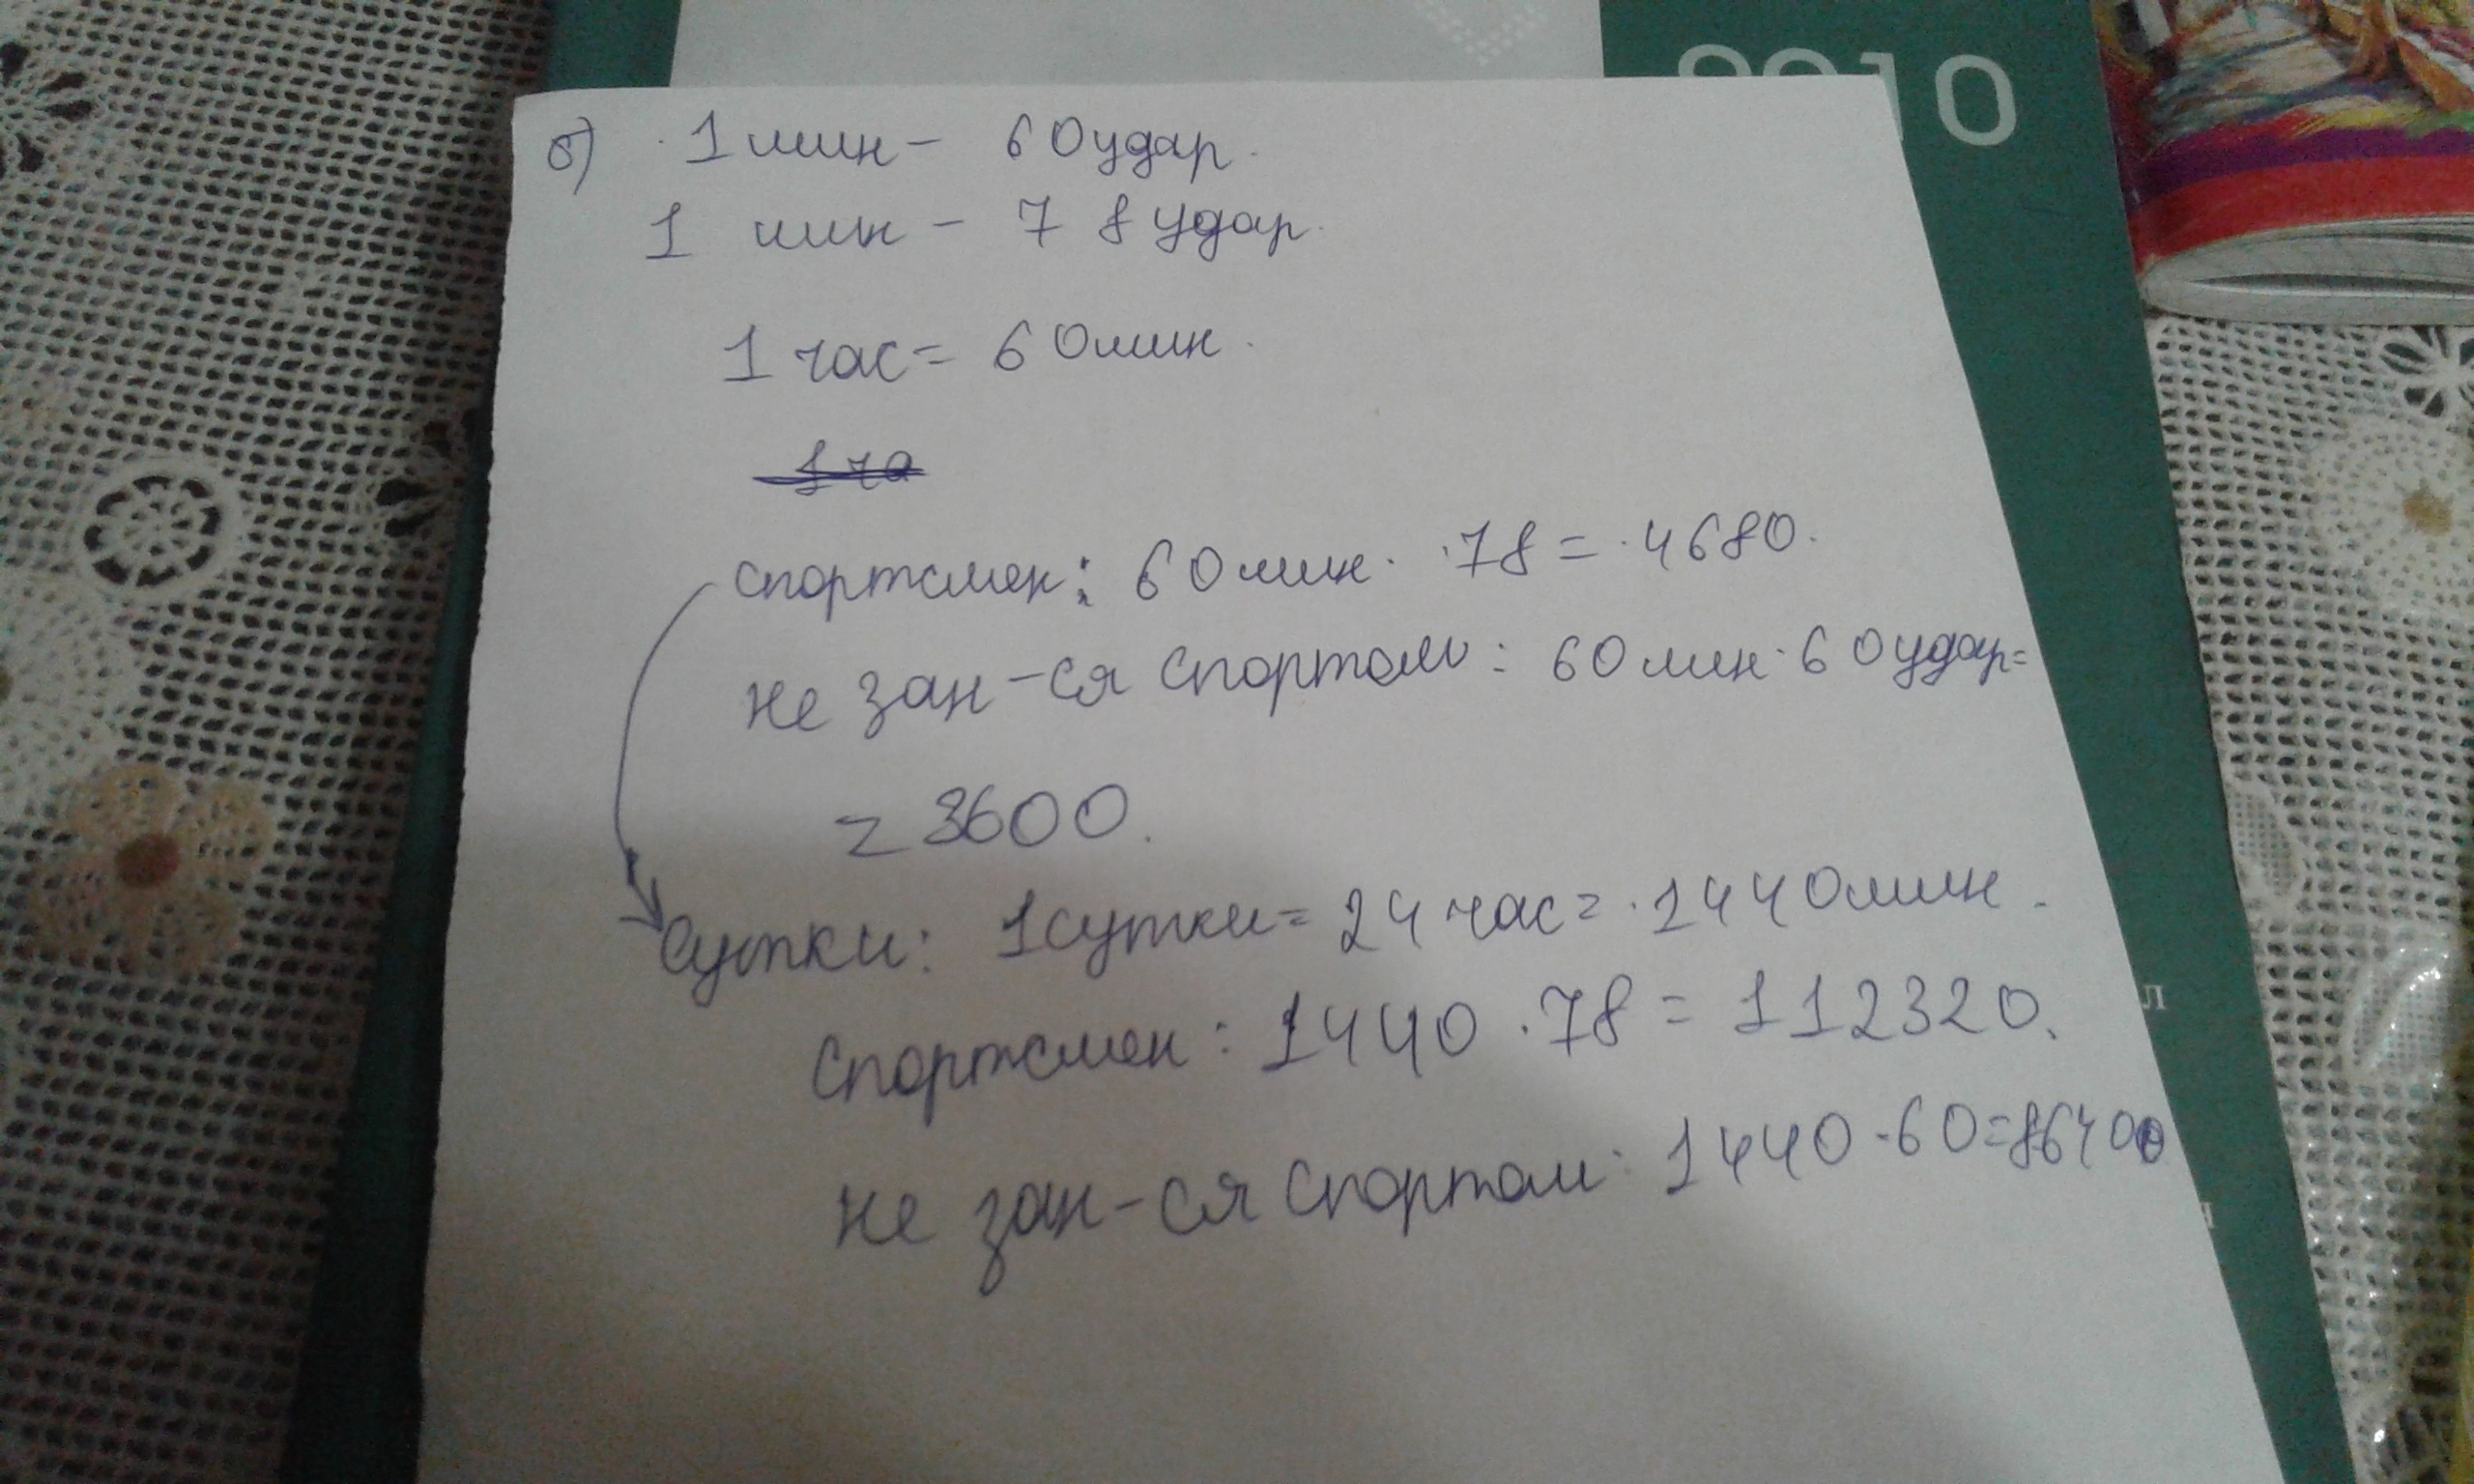 2010
б) 1 мин - 60 удар.
1 мин - 78 удар.
1 час = 60 мин.
1 ча
спортсмен: 60 мин. · 78 = 4680.
не зан-ся спортом: 60 мин · 60 удар =
= 3600.
Сутки: 1 сутки = 24 час = 1440 мин.
Спортсмен: 1440 · 78 = 112320.
не зан-ся спортом: 1440 · 60 = 86400